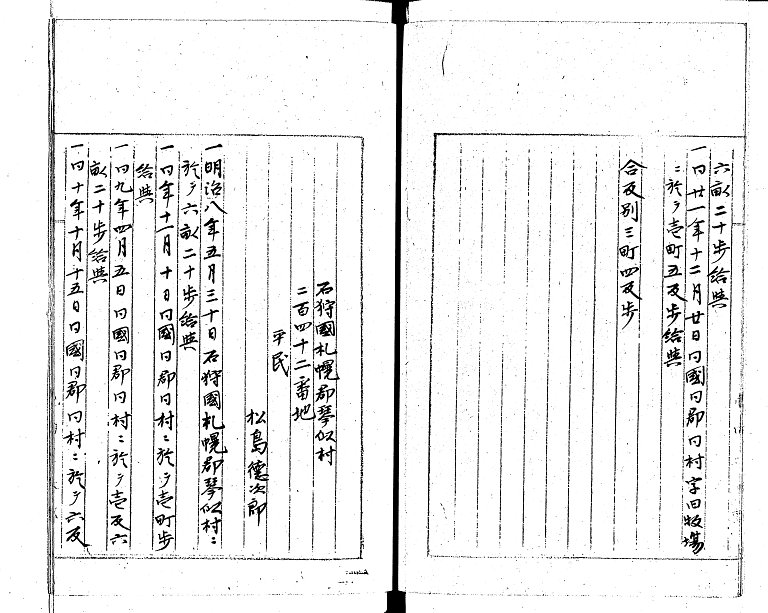 六畝二十歩給與
一同廿一年十二月廿日同國同郡同村字旧牧場
ニ於テ壱町五反歩給與
合反別三町四反歩
石狩國札幌郡琴似村
二百四十二番地
平民
松島德次郎
一明治八年五月三十日石狩國札幌郡琴似村ニ
於テ六畝二十歩給與
一同年十一月十日同國同郡同村ニ於テ壱町歩
給與
一同九年四月五日同國同郡同村ニ於テ壱反六
畝二十歩給與
一同十年十月十五日同國同郡同村ニ於テ六反